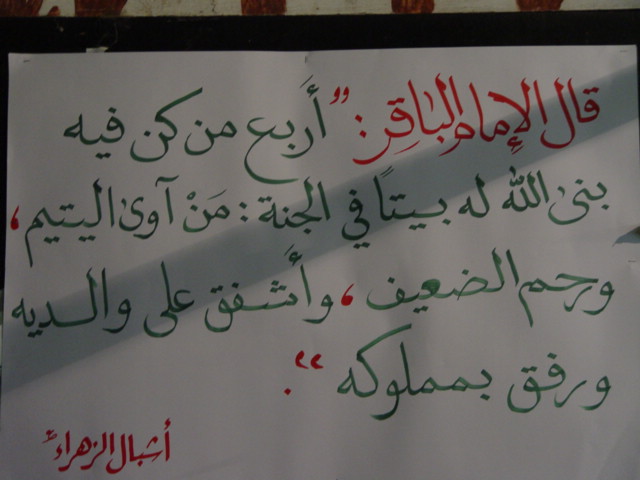 قال الإمام الباقر: "أربع من كن فيه
بنى الله له بيتًا في الجنة: مَنْ آوى اليتيم،
ورحم الضعيف، وأشفق على والديه
ورفق بمملوكه".
أشبال الزهراء